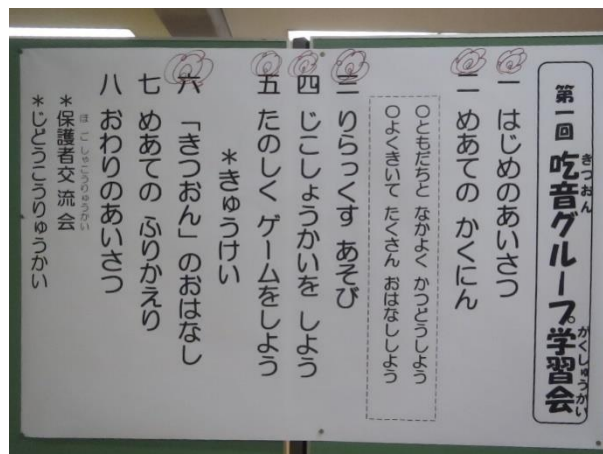 第一回 吃音グループ学習会
きつおん
がくしゅうかい
一 はじめのあいさつ
二 めあての かくにん
○ともだちと なかよく かつどうしよう
○よくきいて たくさん おはなししよう
三 りらっくす あそび
四 じこしょうかいを しよう
五 たのしく ゲームをしよう
*きゅうけい
六 「きつおん」のおはなし
七 めあての ふりかえり
八 おわりのあいさつ
*保護者交流会
ほごしゃこうりゅうかい
*じどうこうりゅうかい